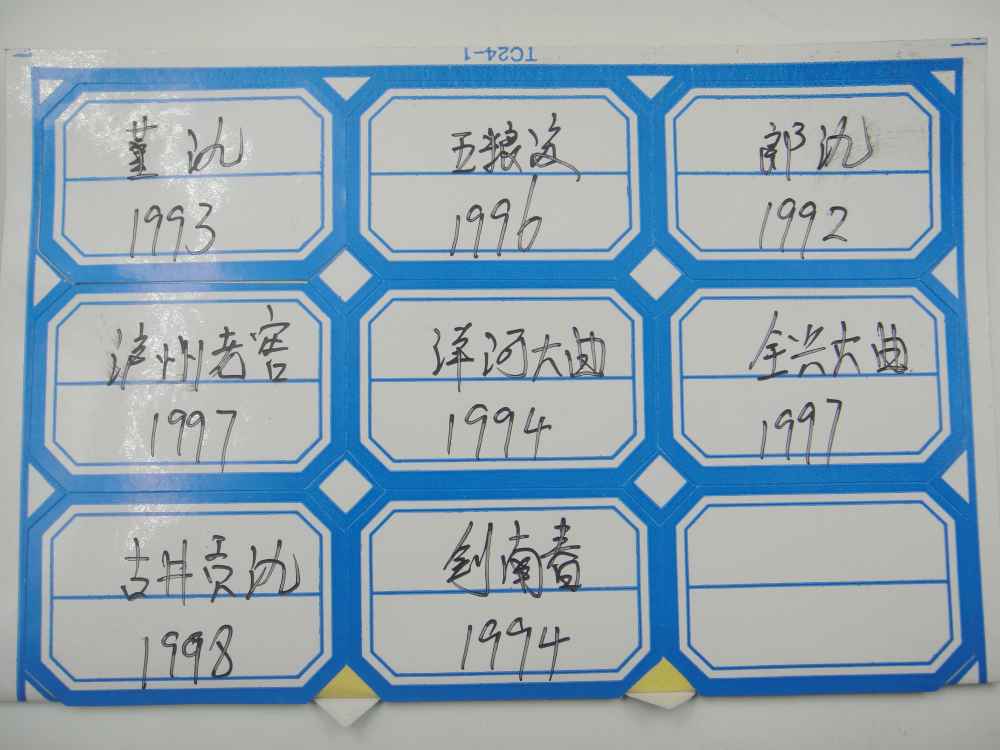 TC24-1
董氿
1993
五粮液
1996
郎氿
1992
泸州老窖
1997
洋河大曲
1994
全兴大曲
1997
古井贡氿
1998
剑南春
1994